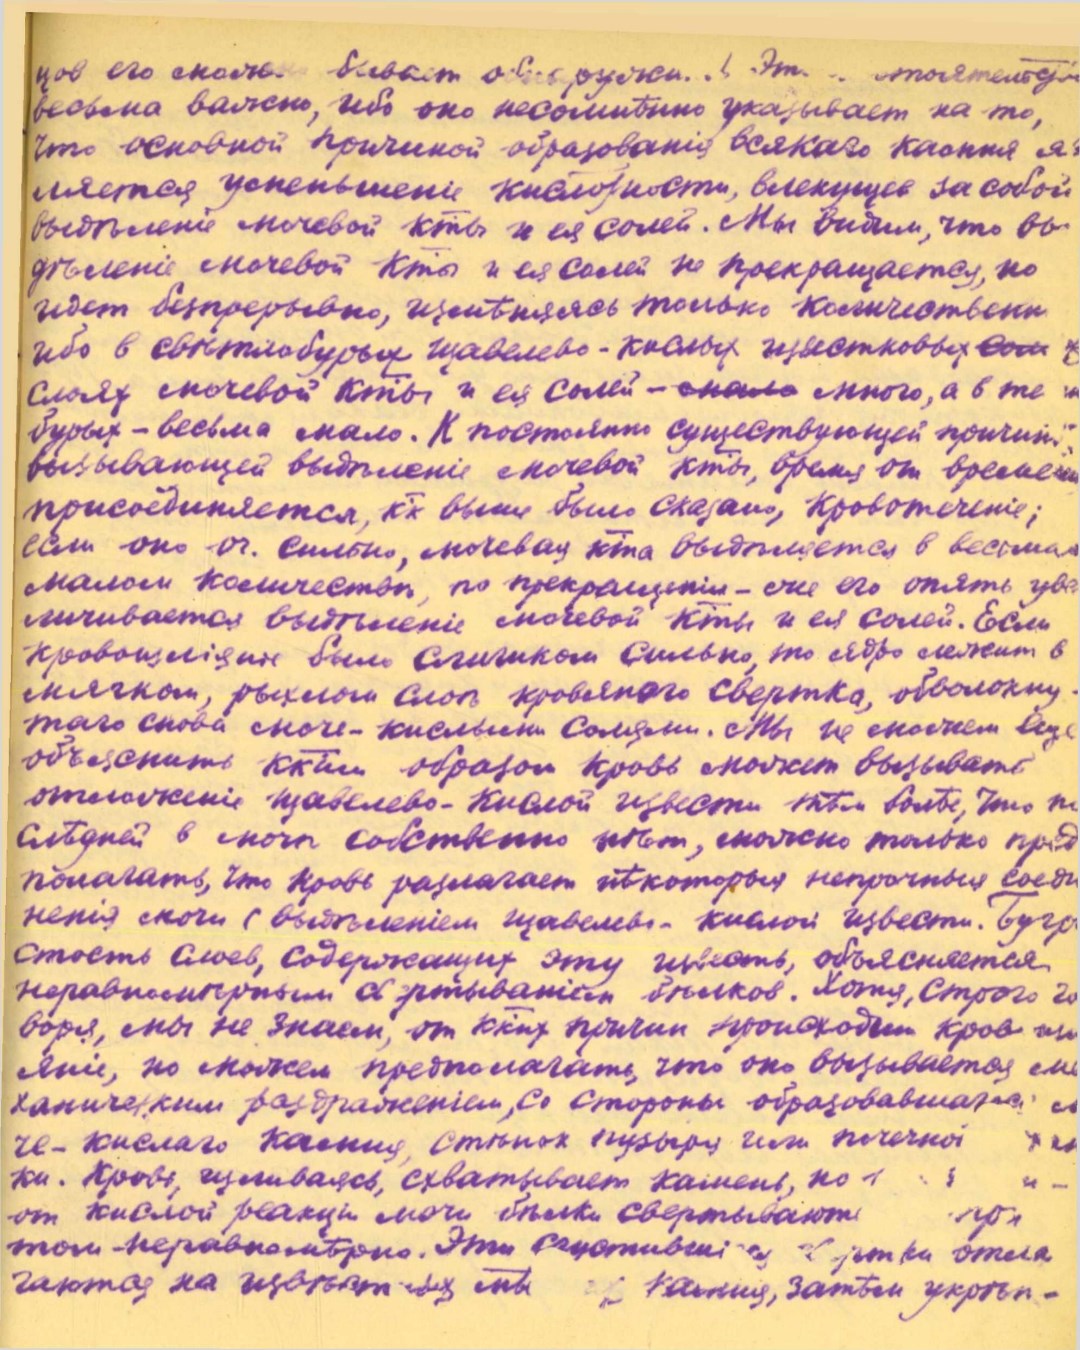 цов его можно бываетъ обнаружи. Эт обстоятельст
весьма важно, ибо оно несомнѣнно указывает на то,
что основной причиной образованія всякаго камня яв
ляется уменьшеніе кислотности, влекущее за собой
выдѣленіе мочевой к̅ты и ея солей. Мы видим, что вы
дѣленіе мочевой к̅ты и ея солей не прекращается, но
идет безпрерывно, измѣняясь только количественн
ибо в свѣтлобурых щавелево-кислых известковых
слоях мочевой к̅ты и ея солей – много, а в те
бурых – весьма мало. К постоянно существующей причинѣ
вызывающей выдѣленіе мочевой к̅ты, время от времени
присоединяется, к̅к выше было сказано, кровотеченіе;
если оно оч. сильно, мочевая к̅та выдѣляется в весьма
малом количествѣ, по прекращеніи-же его опять уве
личивается выдѣленіе мочевой к̅ты и ея солей. Если
кровоизліяние было слишком сильно, то ядро лежит в
мягком, рыхлом слоѣ кровяного свертка, обволокну-
таго снова моче-кислыми солями. Мы не можем еще
объяснить к̅ким образом кровь может вызывать
отложеніе щавелево-кислой извести тѣм болѣе, что по
слѣдней в мочѣ собственно нѣт, можно только пред
полагать, что кровь разлагает нѣкоторыя непрочныя соеди
ненія мочи с выдѣленіем щавелево-кислой извести. Бугри
стость слоев, содержащих эту известь, объясняется
неравномѣрным свертываніем бѣлков. Хотя, строго го
воря, мы не знаем, от к̅ких причин происходит кров
яніе, но можем предполагать, что оно вызывается ме
ханическим раздраженіем, со стороны образовавшагося
че-кислаго камня, стѣнок пузыря или почечной
ки. Кровь, изливаясь, схватывает камень, но
от кислой реакціи мочи бѣлки свертываютс при
том-неравномѣрно. Эти сгустившіеся свертки отла
гаются на извѣстных мѣ камня, затѣм укрѣп-